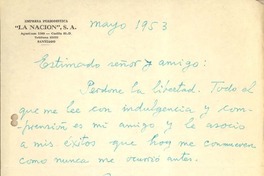 EMPRESA PERIODISTICA
"LA NACION", S. A.
SANTIAGO
mayo 1953
Estimado señor y amigo:
Perdone la libertad. Todo el
que me lee con indulgencia y com-
prensión es mi amigo y le asocio
a mis éxitos que hoy me conmueven
como nunca me ocurrió antes.